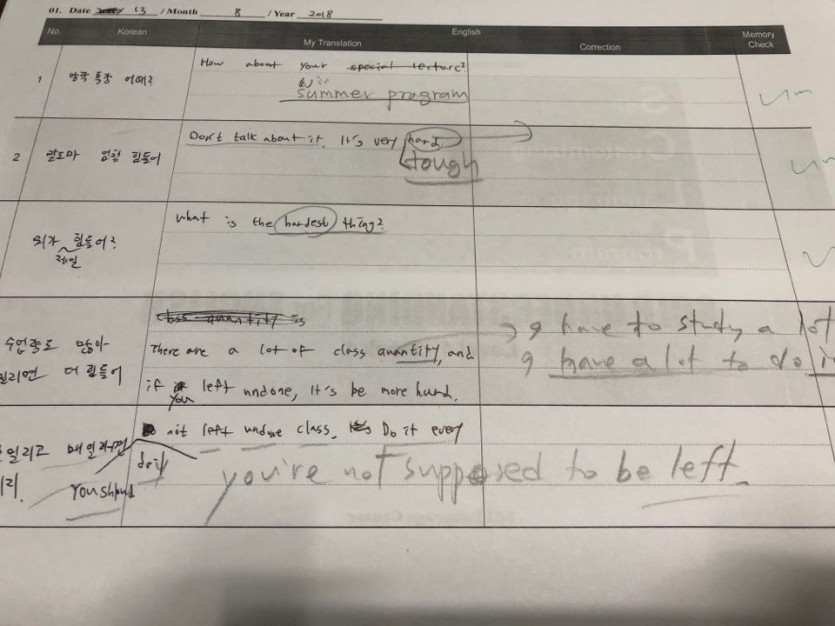 01. Date 13 / Month 8 / Year 2018
No. Korean English Memory Check
My Translation Correction
1 방학 특강 어때?
How about your special lecture?
summer program
2 말도마 엄청 힘들어
Don't talk about it. It's very hard
tough
뭐가 힘들어?
제일
what is the hardest thing?
수업량도 많아
밀리면 더 힘들어
class quantity is
There are a lot of class quantity, and
if you left undone, It's be more hard.
have to study a lot
have a lot to do in
not left undone class. Do it every
You should
do it
you're not supposed to be left.